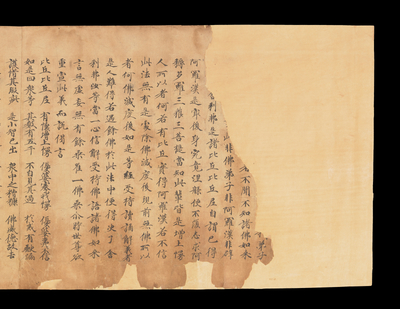 弟子
者不聞不知諸佛如來
此非佛弟子非阿羅漢非辟
舍利弗是諸比丘比丘尼自謂已得
阿羅漢是最後身究竟涅槃便不復志求阿
耨多羅三藐三菩提當知此輩皆是增上慢
人所以者何若有比丘實得阿羅漢若不信
此法無有是處除佛滅度後現前無佛所以
者何佛滅度後如是等經受持讀誦解義者
是人難得若遇餘佛於此法中便得決了舍
利弗汝等當一心信解受持佛語諸佛如來
言無虛妄無有餘乘唯一佛乘爾時世尊欲
重宣此義而說偈言
比丘比丘尼 有懷增上慢 優婆塞我慢 優婆夷不信
如是四眾等 其數有五千 不自見其過 於戒有缺漏
護惜其瑕疵 是小智已出 眾中之糟糠 佛威德故去